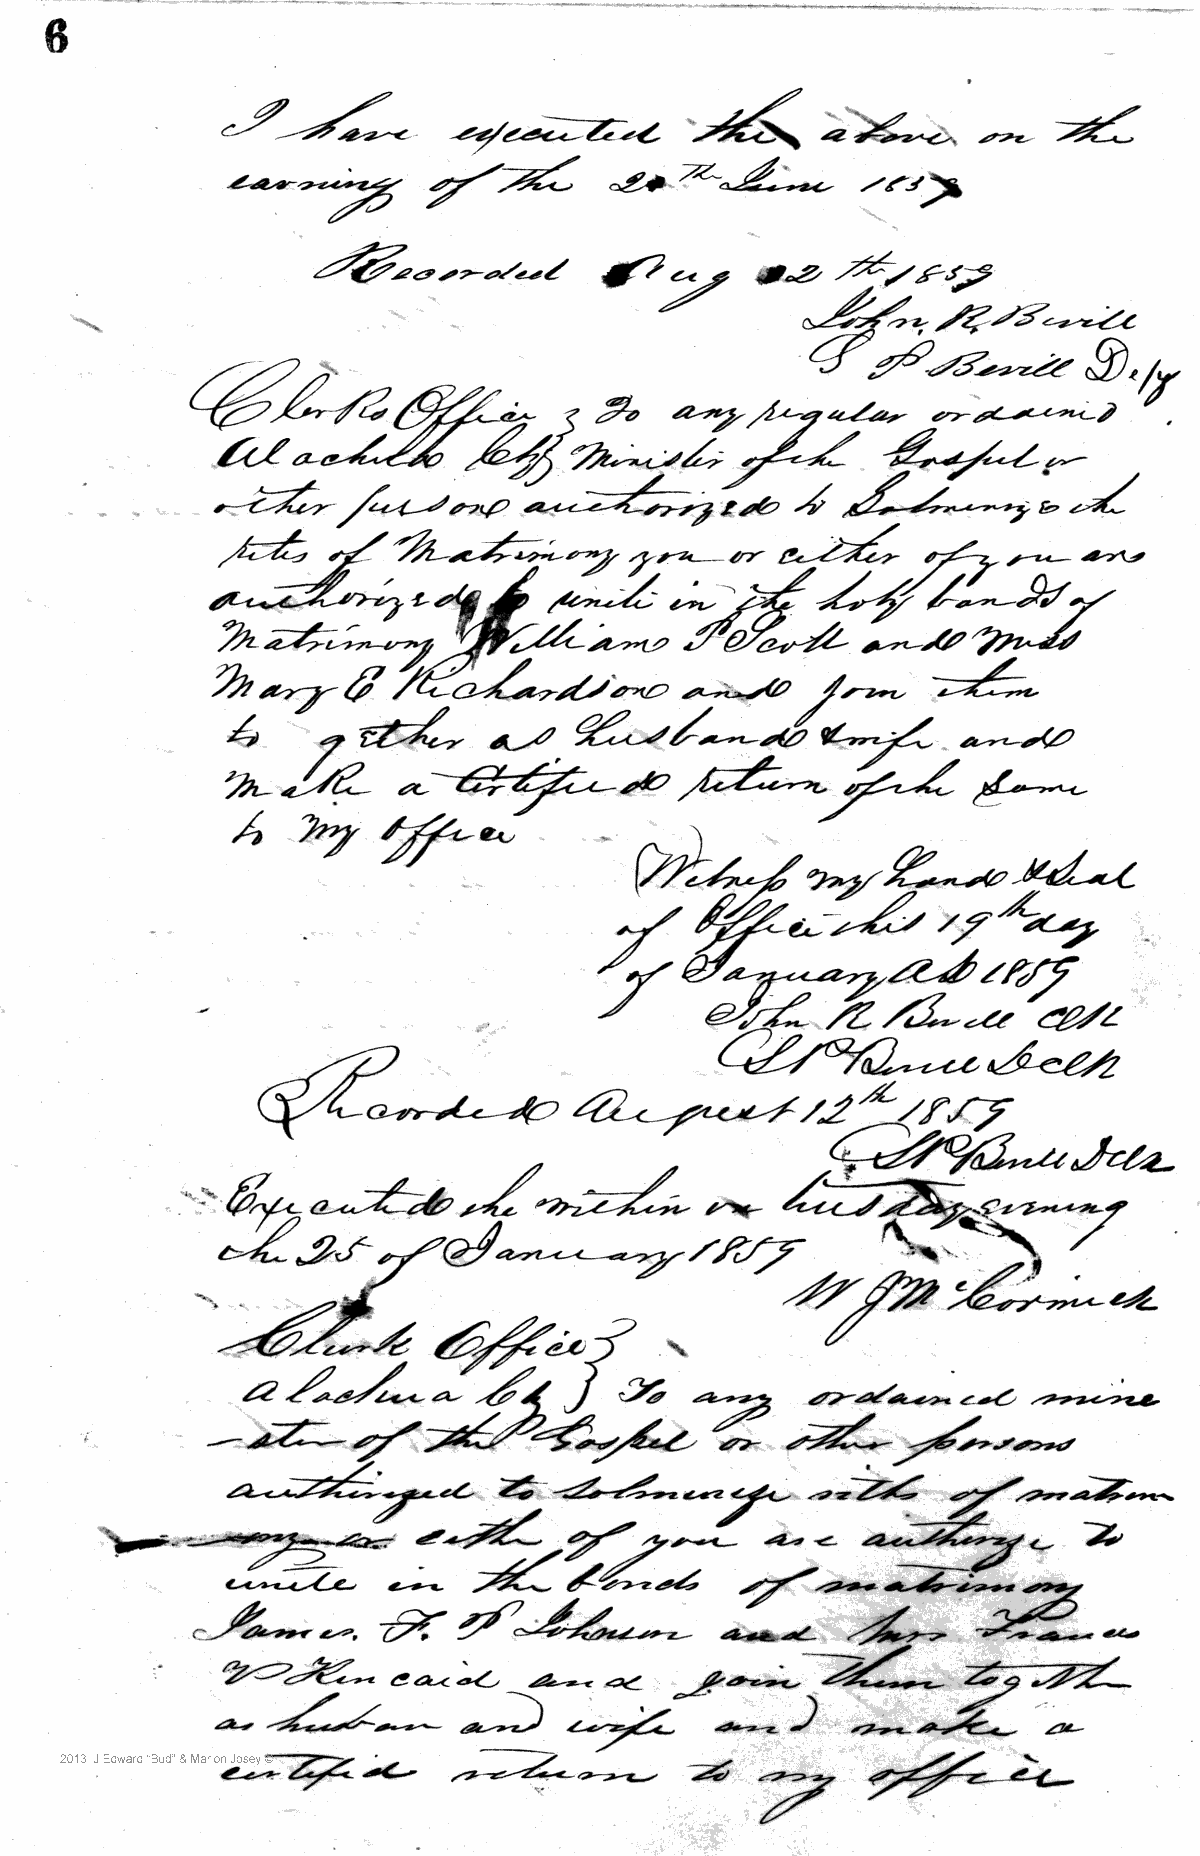 6
I have executed the above on the
earning of the 20th June 1859
Recorded Aug 12th 1859
John. R. Bevill
S P Bevill Depy
Clerks Office } To any regular ordained
Alachua Cty } Minister of the Gospel or
other persons authorized to Solmenize the
rites of Matrimony you or either of you are
authorized to unite in the holy bands of
Matrimony William P Scott and Miss
Mary E Richardson and join them
to gether as husband & wife and
Make a Certified return of the Same
to My Office
Witness my hand & Seal
of Office this 19th day
of January AD 1859
John R Bevill Clk
S P Bevill D Clk
Recorded August 12th 1859
S P Bevill D Clk
Executed the within on tuesday evening
the 25 of January 1859
W J McCormick
Clerk Office }
Alachua Cty } To any ordained mine
-ster of the Gospel or other persons
authorized to solmenize rites of matrim
ony or eathe of you are authorize to
unite in the bonds of matrimony
James. F. P Johnson and Frances
V Kincaid and join them togethe
as husban and wife and make a
certifid return to my office
2013 J Edward "Bud" & Marion Josey ©